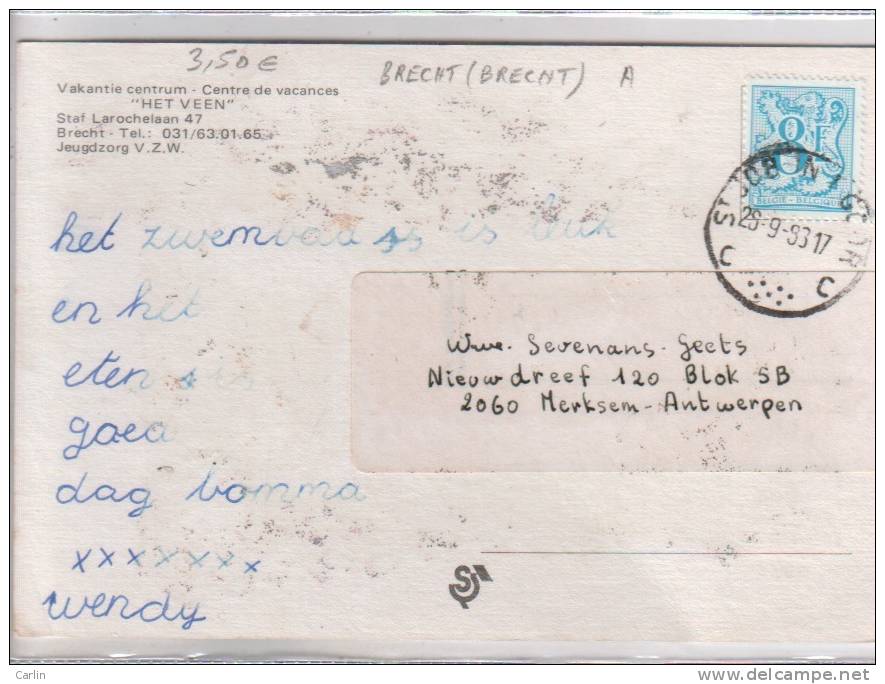 3,50 €
BRECHT (BRECHT) A
Vakantie centrum - Centre de vacances
"HET VEEN"
Staf Larochelaan 47
Brecht - Tel.: 031/63.01.65
Jeugdzorg V.Z.W.
8 F
BELGIË - BELGIQUE
ST JOB IN T GOOR
26-9-83 17
C C
het zwembad is leuk
en het
eten is
goed
dag bomma
x x x x x x x
wendy
Wwe. Sevenans-Geets
Nieuwdreef 120 Blok 5B
2060 Merksem-Antwerpen
Carlin
www.delcampe.net